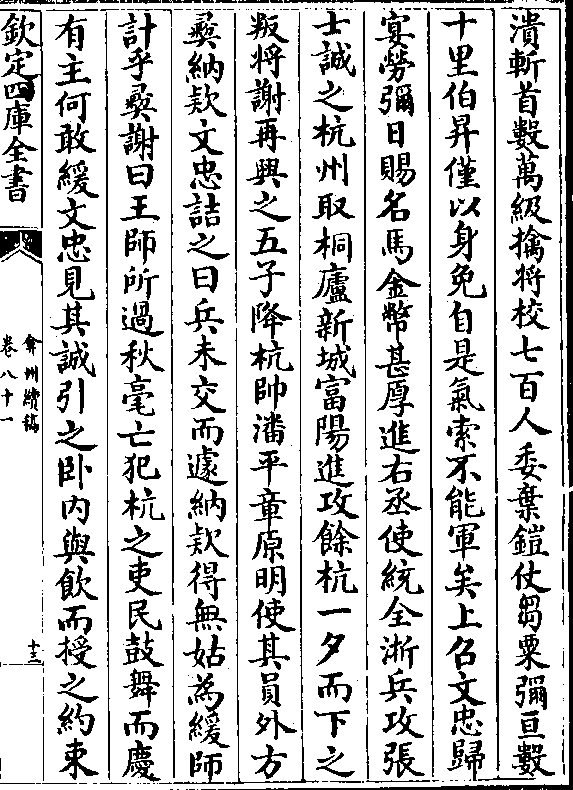 潰斬首數萬級擒將校七百人委棄鎧仗芻粟彌亘數
十里伯昇僅以身免自是氣索不能軍矣上召文忠歸
宴勞彌日賜名馬金幣甚厚進右丞使統全浙兵攻張
士誠之杭州取桐廬新城富陽進攻餘杭一夕而下之
叛將謝再興之五子降杭帥潘平章原明使其員外方
彞納欵文忠詰之曰兵未交而遽納欵得無姑為緩師
計乎彞謝曰王師所過秋毫亡犯杭之吏民鼓舞而慶
有主何敢緩文忠見其誠引之卧内與飲而授之約束
欽定四庫全書
弇州續稿
卷八十一
十三